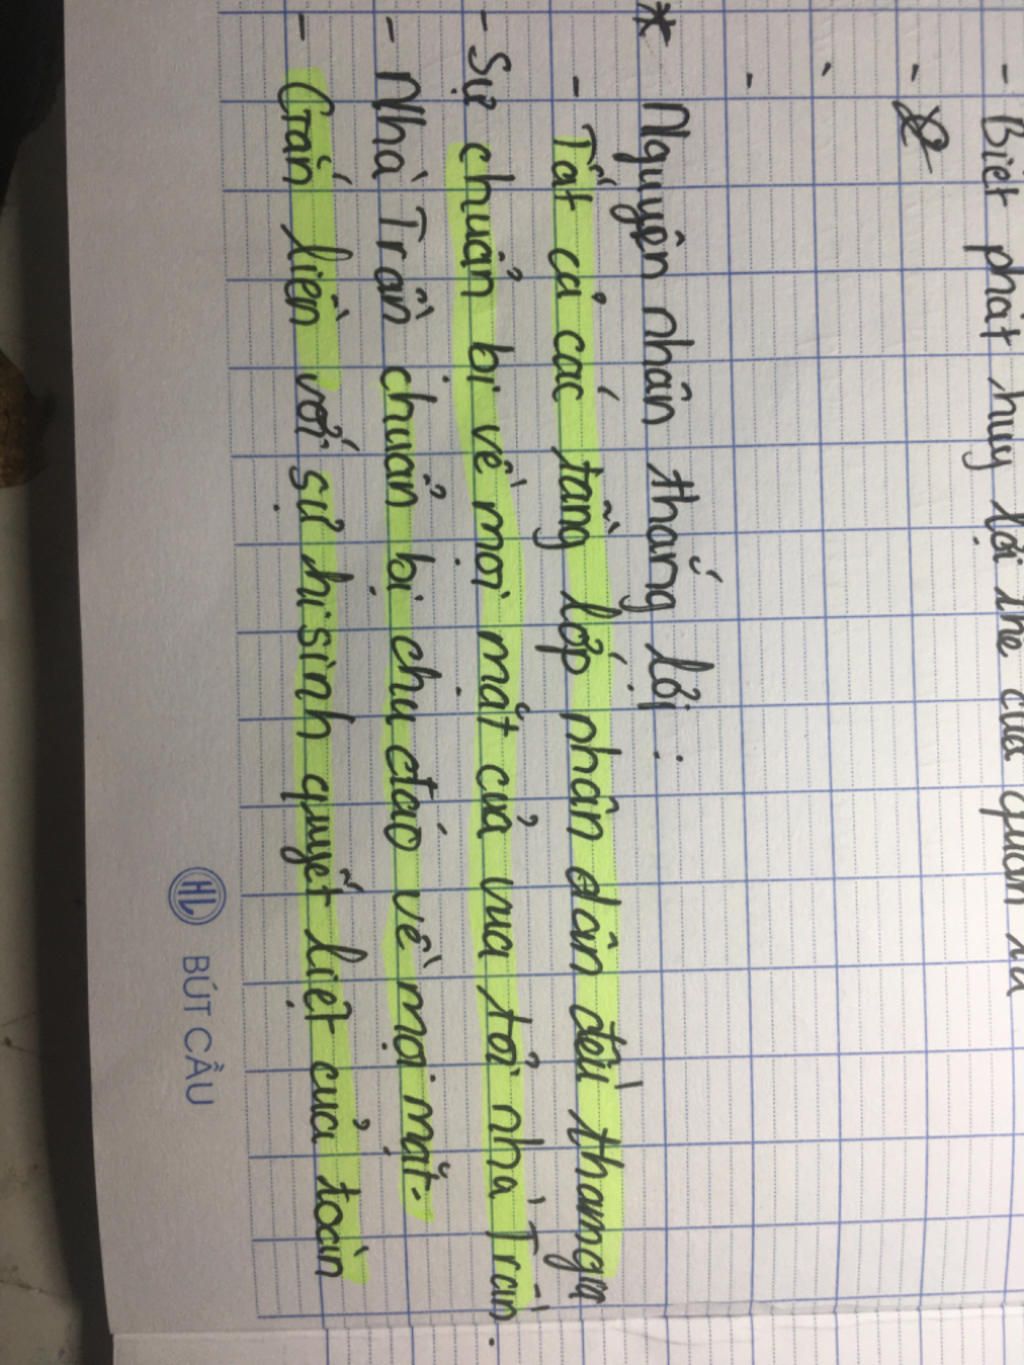 - Biết phát huy lợi thế của quân
-
-
-
* Nguyên nhân thắng lợi :
- Tất cả các tầng lớp nhân dân đều tham gia
- Sự chuẩn bị về mọi mặt của vua tôi nhà Trần.
- Nhà Trần chuẩn bị chu đáo về mọi mặt.
- Gắn liền với sự hi sinh quyết liệt của toàn
HL BÚT CẦU